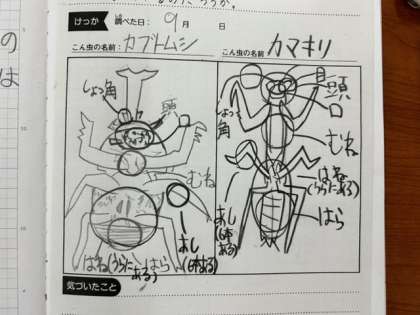 けっか 調べた日： 9月 日
こん虫の名前：カブトムシ
こん虫の名前：カマキリ
しょっ角
頭
むね
あし
(6本ある)
はら
はね(うらにある)
目
頭
口
しょっ角
むね
はね
(うらにある)
はら
あし
(6本ある)
気づいたこと